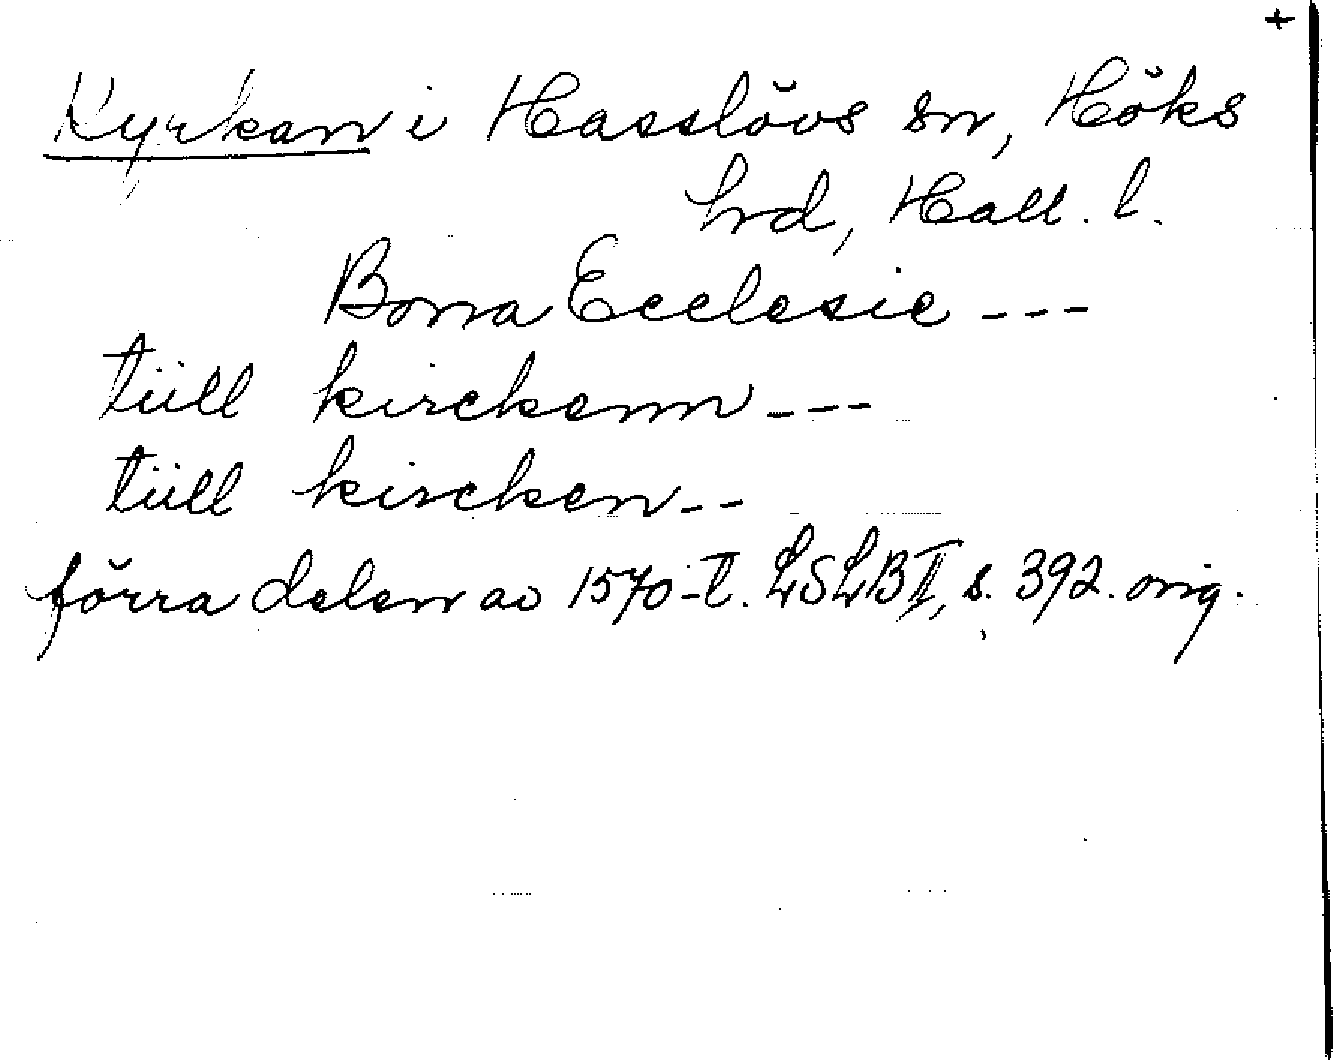 +
Kyrkan i Hasslövs sn, Höks
hrd, Hall. l.
Bona Ecclesie ---
tüll kirckenn ---
tüll kircken --
förra delen av 1570-t. LSLB II, s. 392. orig.